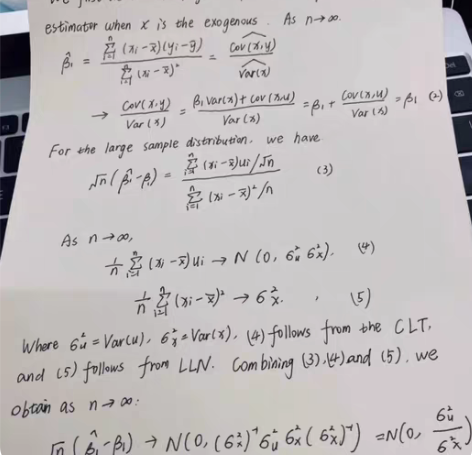 estimator when x is the exogenous. As n→∞.
β̂₁ = Σⁿᵢ₌₁ (xᵢ-x̄)(yᵢ-ȳ) / Σⁿᵢ₌₁ (xᵢ-x̄)² = Cov(x,y)^ / Var(x)^
→ Cov(x,y) / Var(x) = β₁Var(x)+Cov(x,u) / Var(x) = β₁ + Cov(x,u) / Var(x) = β₁ (2)
For the large sample distribution, we have
√n (β̂₁-β₁) = Σⁿᵢ₌₁ (xᵢ-x̄)uᵢ/√n / Σⁿᵢ₌₁ (xᵢ-x̄)²/n (3)
As n→∞,
1/n Σⁿᵢ₌₁ (xᵢ-x̄)uᵢ → N(0, 6²ᵤ6²ₓ). (4)
1/n Σⁿᵢ₌₁ (xᵢ-x̄)² → 6²ₓ. , (5)
Where 6²ᵤ=Var(u), 6²ₓ=Var(x), (4) follows from the CLT,
and (5) follows from LLN. Combining (3),(4)and (5), we
obtain as n→∞:
√n (β̂₁-β₁) → N(0, (6²ₓ)⁻¹6²ᵤ6²ₓ(6²ₓ)⁻¹) =N(0, 6²ᵤ/6²ₓ)